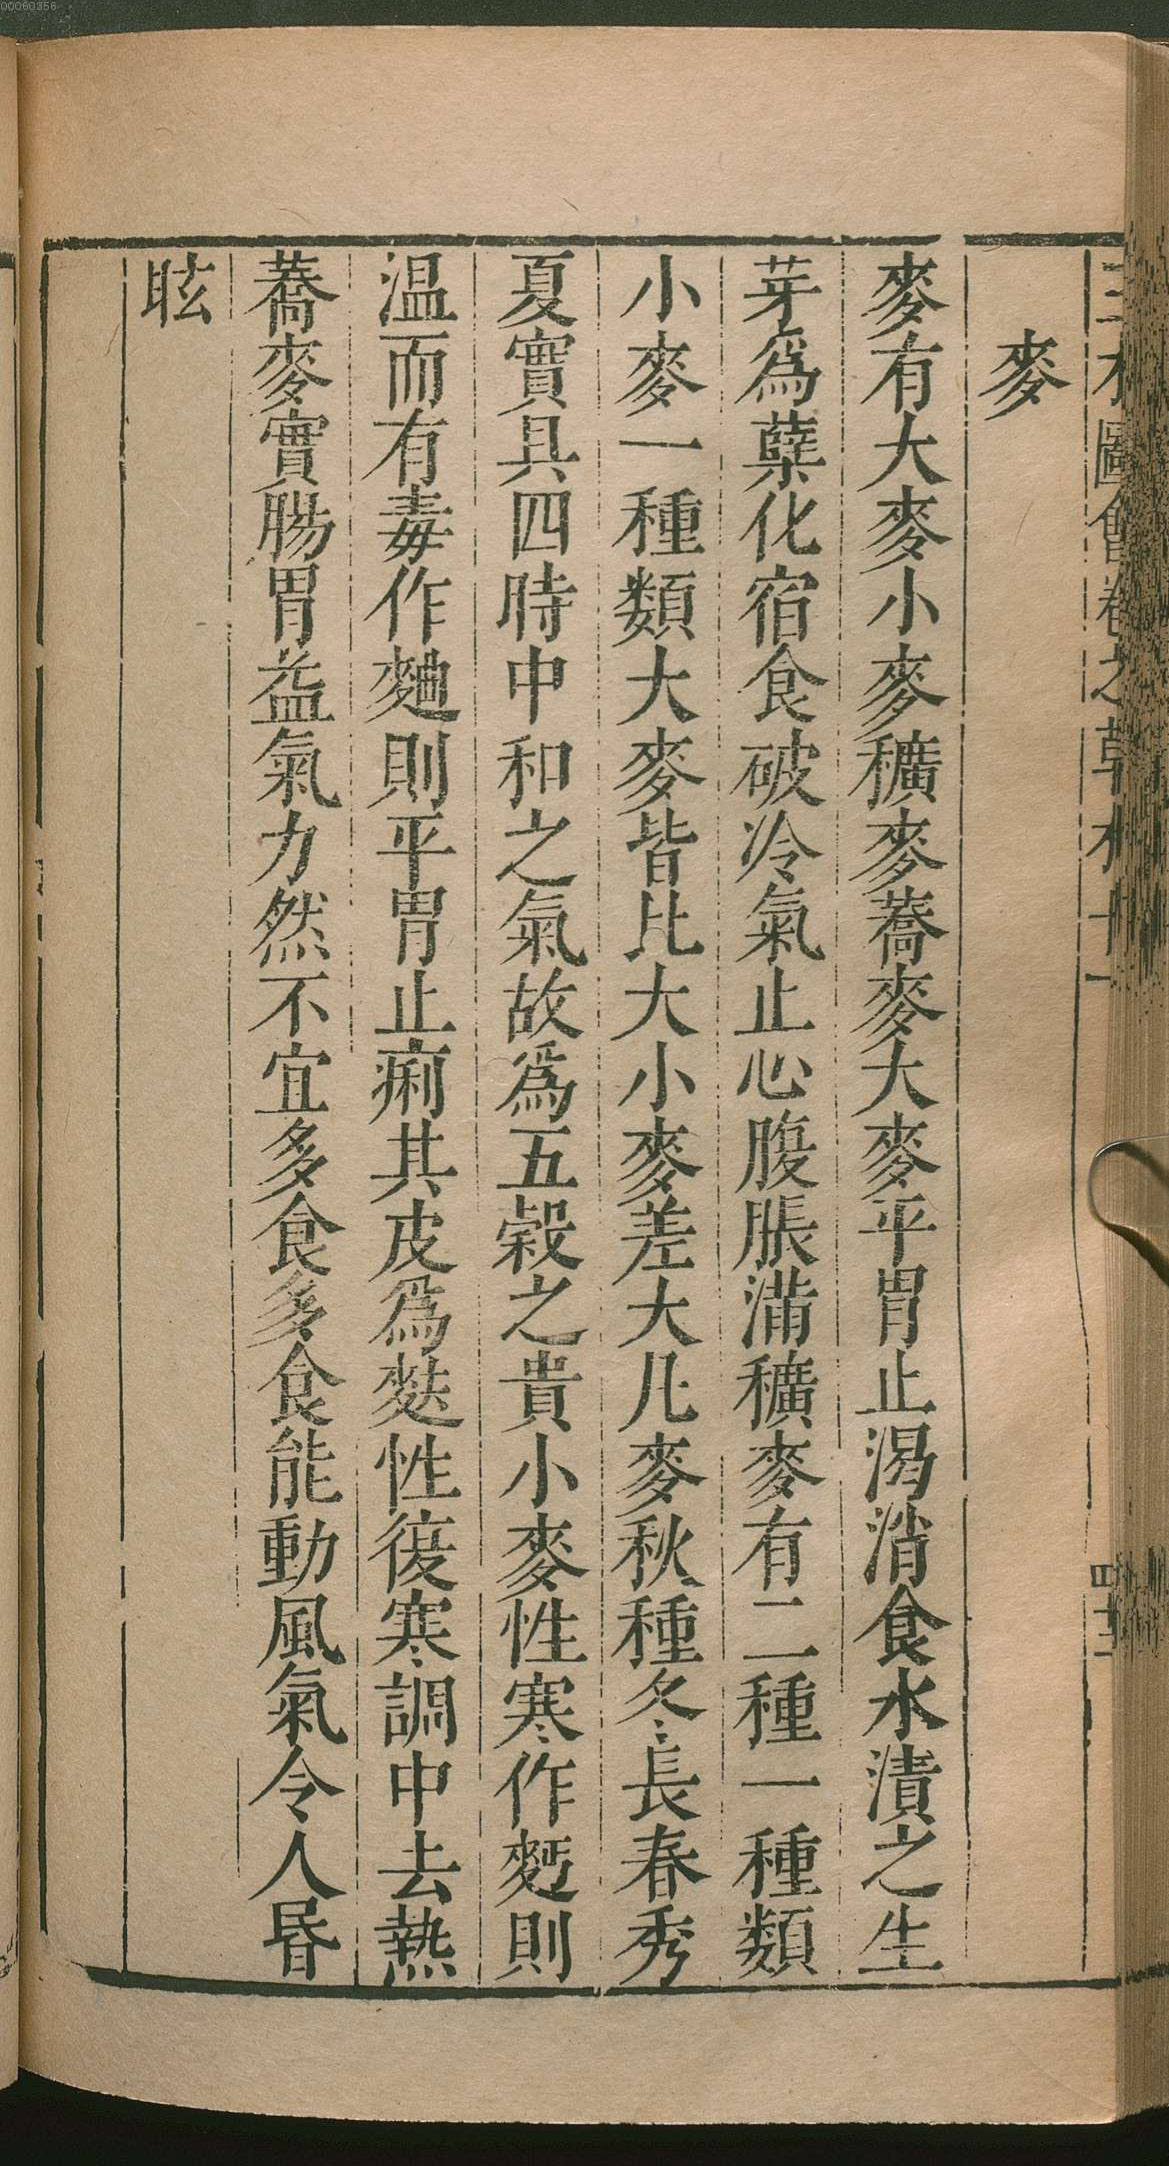 00060356
三才圖會卷之草木十一
四十二
麥
麥有大麥小麥穬麥蕎麥大麥平胃止渴消食水漬之生
芽爲蘖化宿食破冷氣止心腹脹滿穬麥有二種一種類
小麥一種類大麥皆比大小麥差大凡麥秋種冬長春秀
夏實具四時中和之氣故爲五穀之貴小麥性寒作麪則
温而有毒作麯則平胃止痢其皮爲麩性復寒調中去熱
蕎麥實腸胃益氣力然不宜多食多食能動風氣令人昬
眩